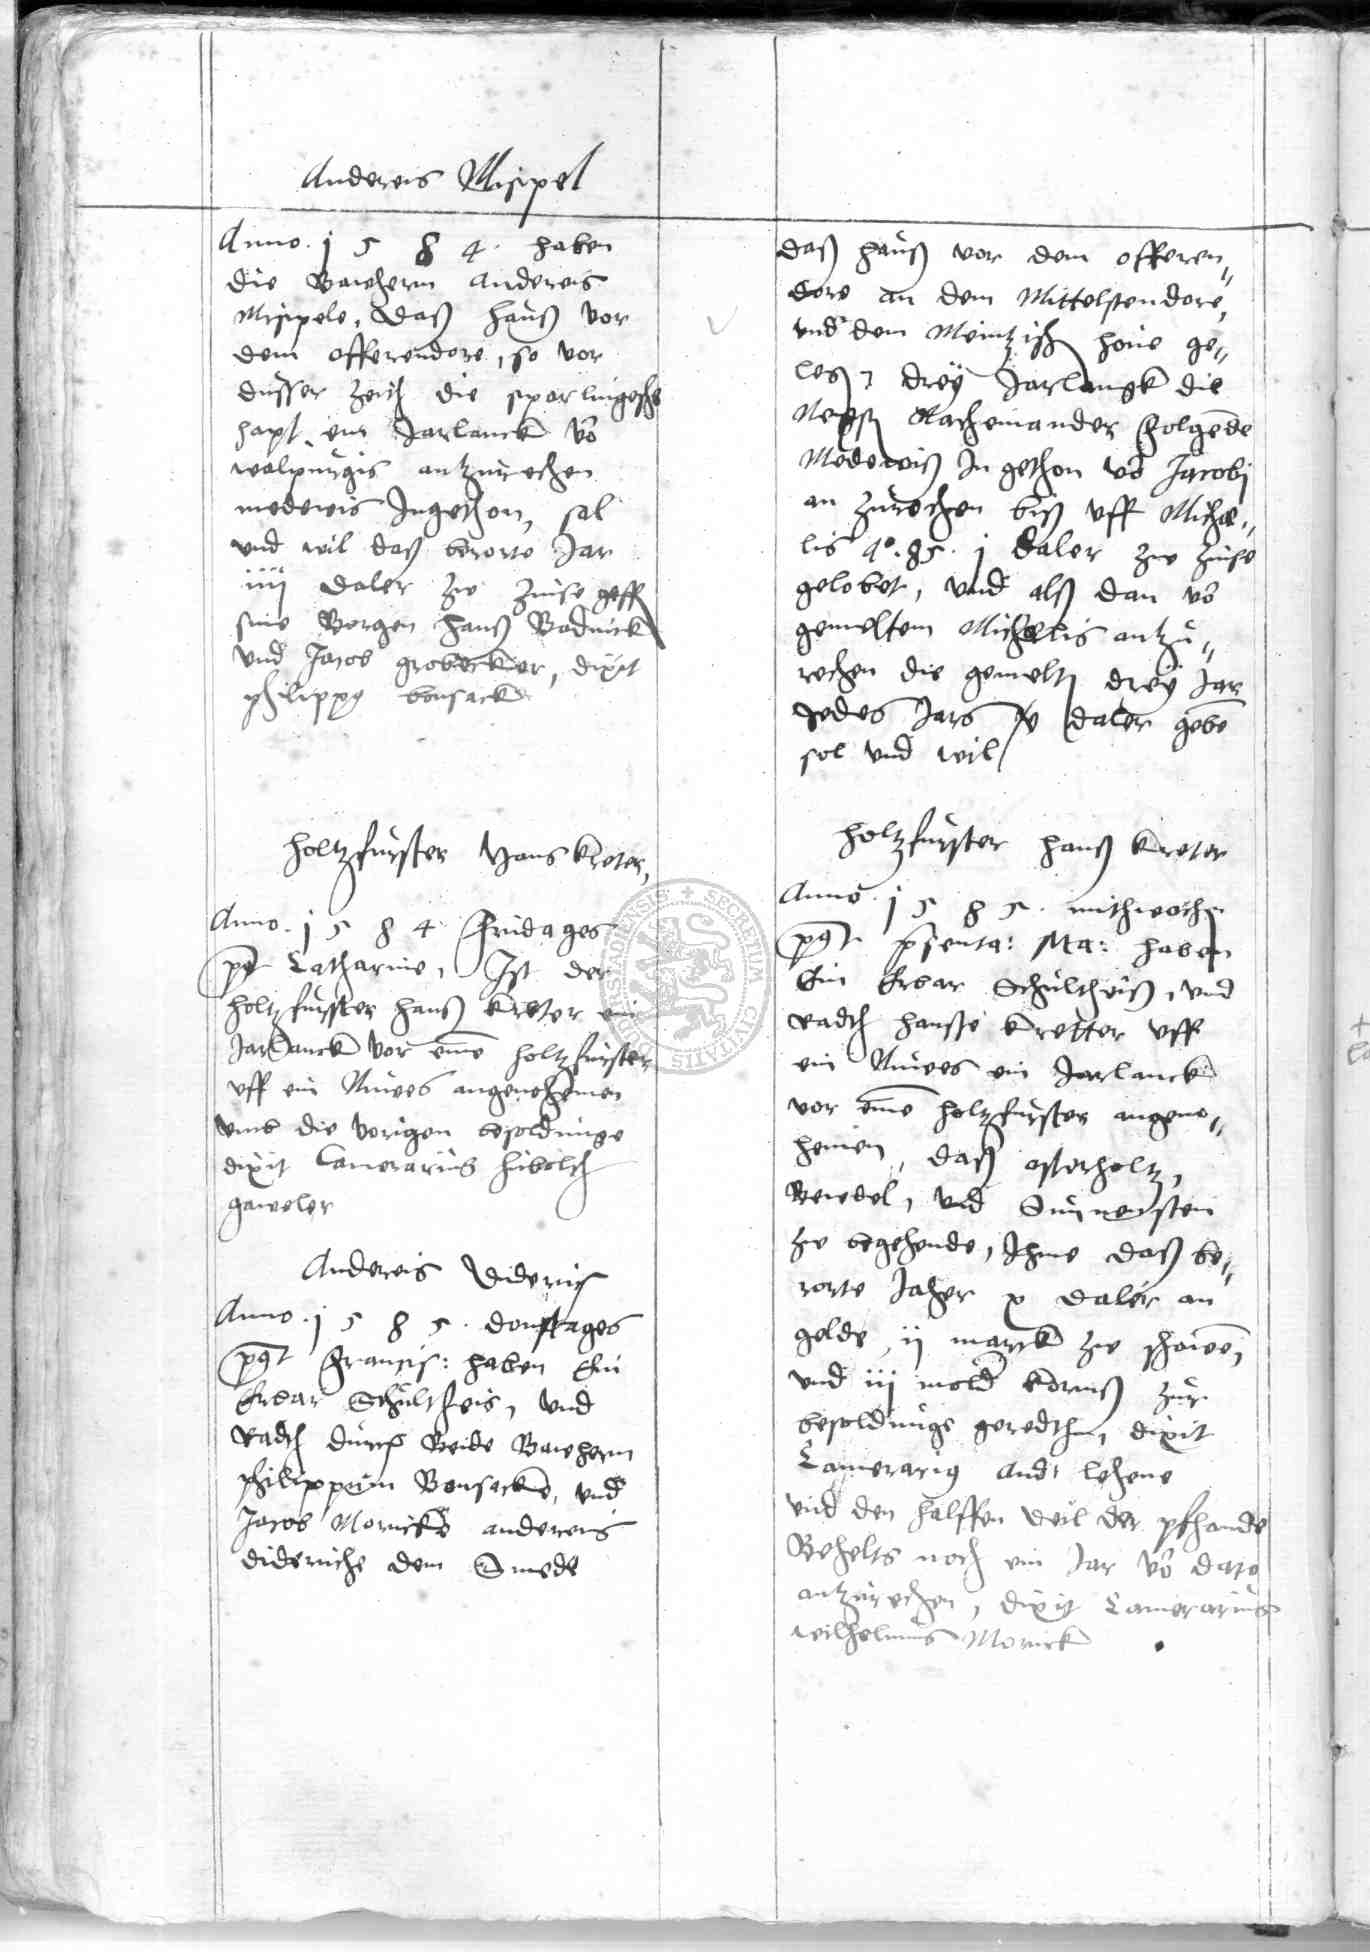 Andereis Misspel
Anno · 1 5 8 4 · haben
die Bawhern Andereis
Misspele, daß hauß vor
dem offerendore, so vor
dusser zeith die sparlingesche
hapt, ein Jarlanck vō
walpurgis antzurechen
medewis Ingethon, sal
vnd wil daß berorte Jar
iiij daler zw zinse geff
sine Borgen Hanß Bodnick
vnd Jacob grobecker, dixit
philippg bonsack
holtzfurster Hans kreter,
Anno · 1 5 8 4 fridages
pt Catharine, Ist der
holtzfurster hanß kreter ein
Jarlanck vor eine holtzfurster
vff ein Nuwes angenohemen
vmb die vorigen besoldunge
dixit Camerarius hibolth
gaweler
Andereis Diderich
Anno · 1 5 8 5 · donstages
pgt Francis: haben Ein
Erbar Schultheis, vnd
Radth durch Beide Bawhern
philippum Bonsacke, vnd
Jacob Mornicke andereis
dideriche dem Smede
daß hauß vor dem offeren„
dore an dem Mittelstendore,
vnd dem Meintzisch hoiie ge„
leg, drey Jarlangk die
Negst Nacheinander folgēde
Medewiß In gethon vō Jacobj
an zurechen biß vff Michae„
lis Aº. 85 · j daler zw zinse
gelobet, vnd alß dan vō
gemeltem Michaelis antzu„
rechen die gemelt drey Jar
Jedes Jars v daler gebē
sol vnd wil
holtzfurster hanß kreter
Anno · 1 5 8 5 · mithwochē
pgt p̄senta: Ma: haben
Ein Erbar Schultheiß, vnd
Radth hansse kretter vff
ein Nuwes ein Jarlanck
vor eine holtzfurster angeno„
hemen, daß osterholtz,
Rewedel, vnd Sunnerstein
zw begehende, Ihme daß be„
rorte Jaher x daler an
gelde, ij marck zw schowē,
vnd iij mold kornß zur
besoldunge geredth, dixit
Camerarig And: Lehene
vnd den halffen deil der pfhande
Behelts noch ein Jar vō dato
antzurechen, dixit Camerarius
wilhelmus Mornick